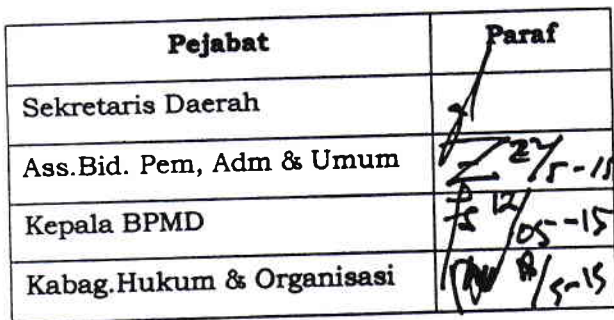 Pejabat Paraf
Sekretaris Daerah
Ass.Bid. Pem, Adm & Umum
Kepala BPMD 12/05-15
Kabag.Hukum & Organisasi